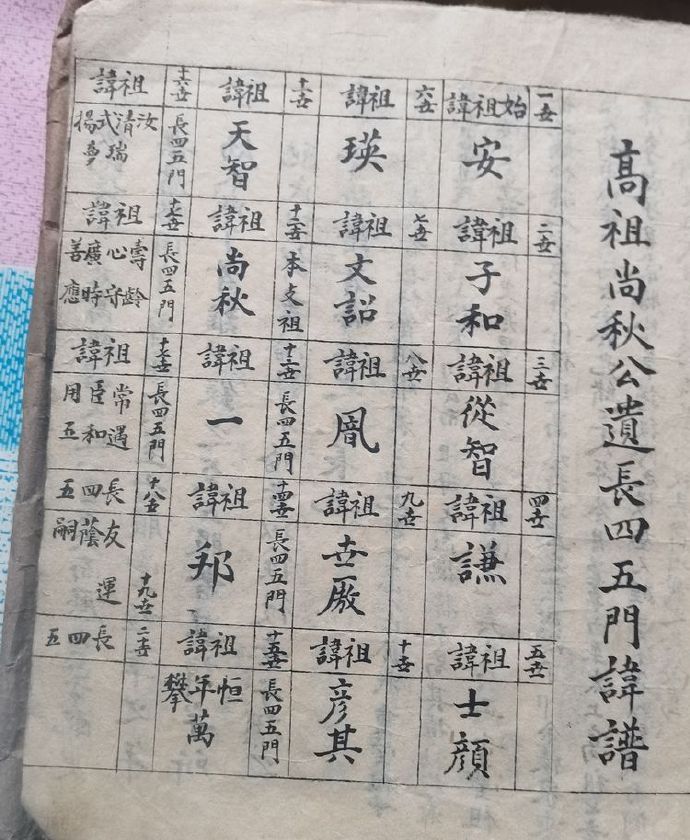 髙祖尚秋公遺長四五門諱譜
一世
始祖諱
安
二世
祖諱
子和
三世
祖諱
從智
四世
祖諱
謙
五世
祖諱
士顔
六世
祖諱
瑛
七世
祖諱
文詔
八世
祖諱
九世
祖諱
世
十世
祖諱
彦其
十一世
祖諱
天智
十二世
祖諱
本支祖
尚秋
十三世
祖諱
長四五門
一
十四世
祖諱
長四五門
邦
十五世
祖諱
長四五門
恒年攀
萬
十六世
祖諱
長四五門
汝清式揚
瑞夢
十七世
祖諱
長四五門
壽心廣善
齡守時應
十七世
祖諱
長四五門
常臣用
遇和五
十八世
長四五
友蔭嗣
十九世
運
二十世
長四五